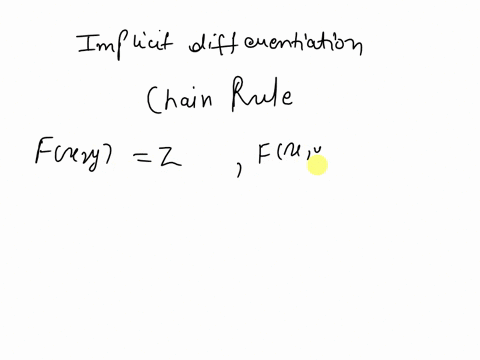 Implicit differentiation
Chain Rule
F(x,y) = Z , F(x,